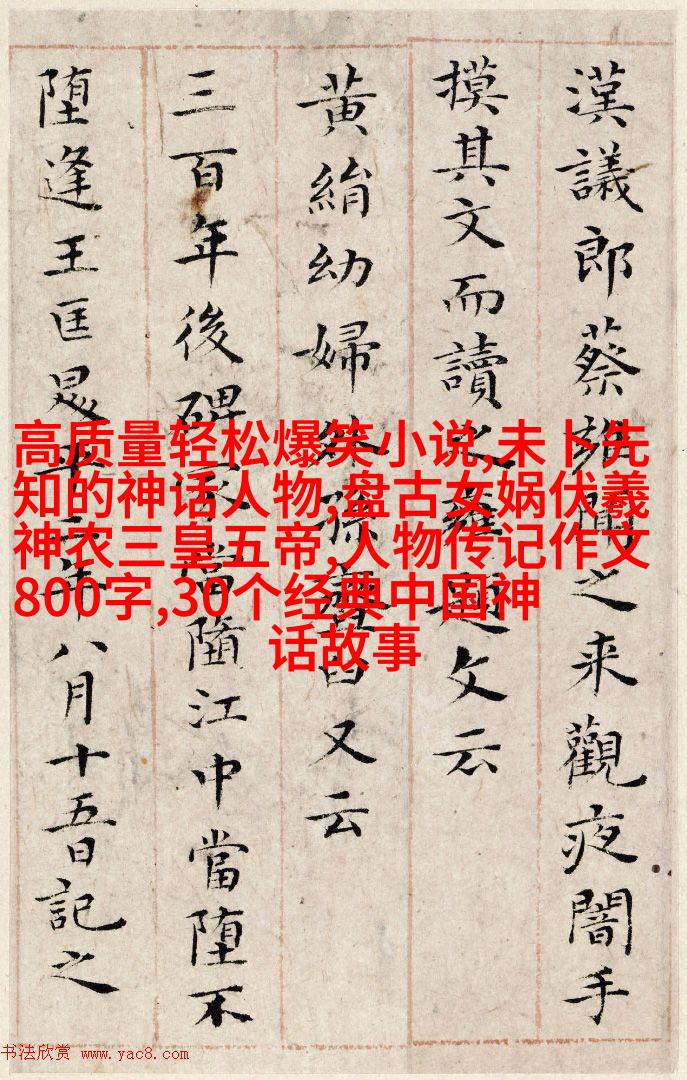 漢議郎蔡雍聞之来觀夜闇手
摸其文而讀之雍題文云
黄絹幼婦外孫韲臼又云
三百年後碑冢當江中當堕不
堕逢王匡平二年八月十五日記之
高质量轻松爆笑小说,未卜先
知的神话人物,盘古女娲伏羲
神农三皇五帝,人物传记作文
800字,30个经典中国神
话故事
书法欣赏 www.yac8.com